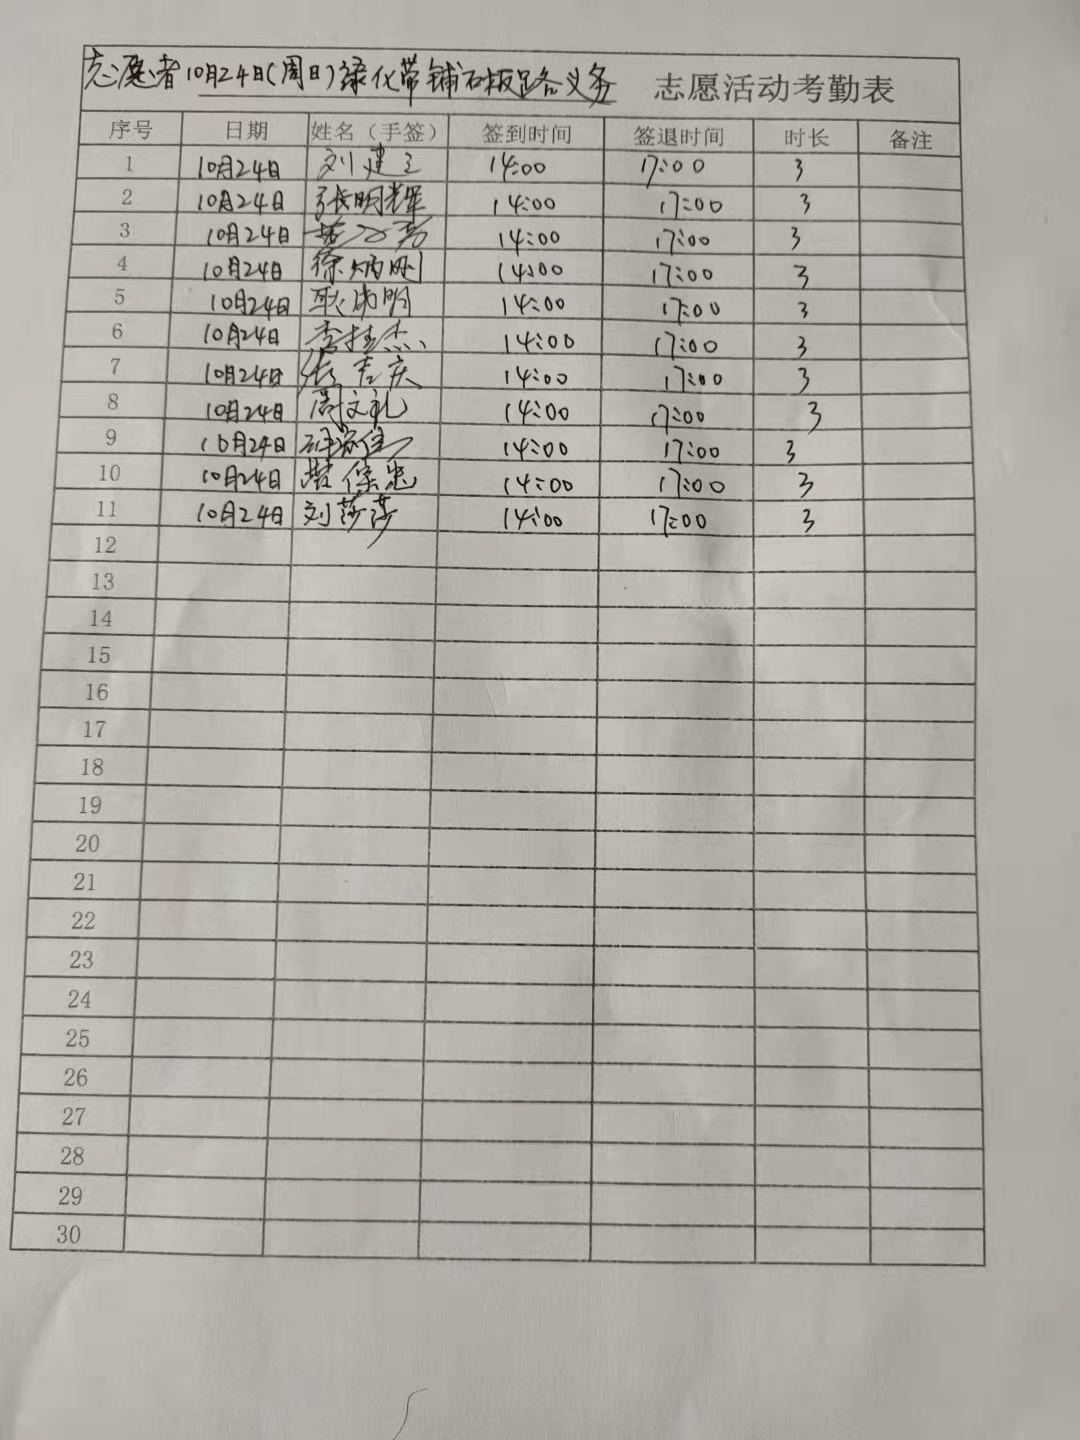 志愿者10月24日(周日)绿化带铺石板路义务 志愿活动考勤表
序号 日期 姓名（手签） 签到时间 签退时间 时长 备注
1 10月24日 刘建立 14:00 17:00 3
2 10月24日 张明辉 14:00 17:00 3
3 10月24日 14:00 17:00 3
4 10月24日 徐炳刚 14:00 17:00 3
5 10月24日 耿 明 14:00 17:00 3
6 10月24日 李桂杰 14:00 17:00 3
7 10月24日 张吉庆 14:00 17:00 3
8 10月24日 周文礼 14:00 17:00 3
9 10月24日 14:00 17:00 3
10 10月24日 保忠 14:00 17:00 3
11 10月24日 刘莎莎 14:00 17:00 3
12
13
14
15
16
17
18
19
20
21
22
23
24
25
26
27
28
29
30